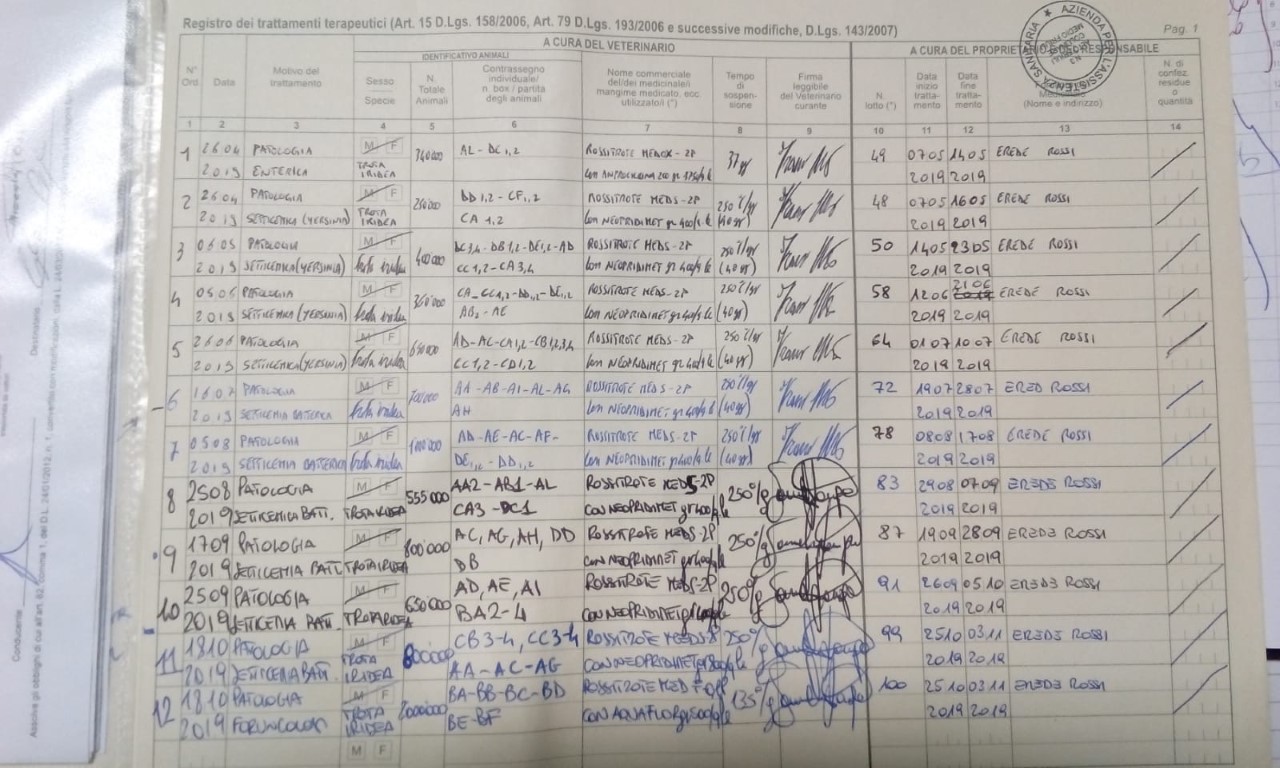 Registro dei trattamenti terapeutici (Art. 15 D.Lgs. 158/2006, Art. 79 D.Lgs. 193/2006 e successive modifiche, D.Lgs. 143/2007) Pag. 1
A CURA DEL VETERINARIO A CURA DEL PROPRIETARIO RESPONSABILE
IDENTIFICATIVO ANIMALI
N° Ord Data Motivo del trattamento Sesso Specie N. Totale Animali Contrassegno individuale/ n. box / partita degli animali Nome commerciale del/dei medicinale/i mangime medicato, ecc. utilizzato/i (*) Tempo di sospensione Firma leggibile del Veterinario curante N. lotto (*) Data inizio trattamento Data fine trattamento (Nome e indirizzo) N. di confez. residue o quantità
1 2 3 4 5 6 7 8 9 10 11 12 13 14
1 26.04 PATOLOGIA M F 740000 AL - DC1,2 ROSSITROTE MEDOX-2P 37 49 0705 1405 EREDE ROSSI
2019 ENTERICA TROTA IRIDEA 2019 2019
2 26.04 PATOLOGIA M F 250000 DD 1,2 - CF1,2 ROSSITROTE MEDS-2P 250 48 0705 1605 EREDE ROSSI
2019 SETTICEMICA (YERSINIA) TROTA IRIDEA CA 1,2 CON NEOPRIDIMET (40 gg) 2019 2019
3 06.05 PATOLOGIA M F 400000 DC3,4 - DB1,2 - DE1,2 - AD ROSSITROTE MEDS-2P 250 50 1405 2305 EREDE ROSSI
2019 SETTICEMICA (YERSINIA) trota iridea CC1,2 - CA3,4 CON NEOPRIDIMET (40 gg) 2019 2019
4 05.06 PATOLOGIA M F 360000 CA - CC1,2 - DD1,2 - DE1,2 ROSSITROTE MEDS-2P 250 58 1206 2106 EREDE ROSSI
2019 SETTICEMICA (YERSINIA) trota iridea AB2 - AE CON NEOPRIDIMET (40 gg) 2019 2019
5 26.06 PATOLOGIA M F 650000 AD - AC - CA1,2 - CB1,2,3,4 ROSSITROTE MEDS-2P 250 64 0107 1007 EREDE ROSSI
2019 SETTICEMICA (YERSINIA) trota iridea CC1,2 - CD1,2 CON NEOPRIDIMET (40 gg) 2019 2019
6 16.07 PATOLOGIA M F 700000 AA - AB - AI - AL - AG ROSSITROTE MEDS-2P 250 72 1907 2807 ERED ROSSI
2019 SETTICEMIA BATTERICA trota iridea AH CON NEOPRIDIMET (40 gg) 2019 2019
7 05.08 PATOLOGIA M F 1000000 AD - AE - AC - AF - ROSSITROTE MEDS-2P 250 78 0808 1708 EREDE ROSSI
2019 SETTICEMIA BATTERICA trota iridea DE1,2 - DD1,2 CON NEOPRIDIMET (40 gg) 2019 2019
8 2508 PATOLOGIA M F 555000 AA2 - AB1 - AL ROSSITROTE MEDS-2P 250 83 2908 0709 EREDE ROSSI
2019 SETTICEMIA BATT. TROTA IRIDEA CA3 - DC1 CON NEOPRIDIMET 2019 2019
9 1709 PATOLOGIA M F 800000 AC, AG, AH, DD ROSSITROTE MEDS-2P 250 87 1909 2809 EREDE ROSSI
2019 SETTICEMIA BATT. TROTA IRIDEA DB CON NEOPRIDIMET 2019 2019
10 2509 PATOLOGIA M F 650000 AD, AE, AI ROSSITROTE MEDS-2P 250 91 2609 0510 EREDE ROSSI
2019 SETTICEMIA BATT. TROTA IRIDEA BA2-4 CON NEOPRIDIMET 2019 2019
11 1810 PATOLOGIA M F 800000 CB3-4, CC3-4 ROSSITROTE MEDS 250 99 2510 0311 EREDE ROSSI
2019 SETTICEMIA BATT. TROTA IRIDEA AA - AC - AG CON NEOPRIDIMET 2019 2019
12 1810 PATOLOGIA M F 2000000 BA-BB-BC-BD ROSSITROTE MED 135 100 2510 0311 EREDE ROSSI
2019 FORUNCOLOSI TROTA IRIDEA BE-BF CON AQUAFLOR 2019 2019
M F